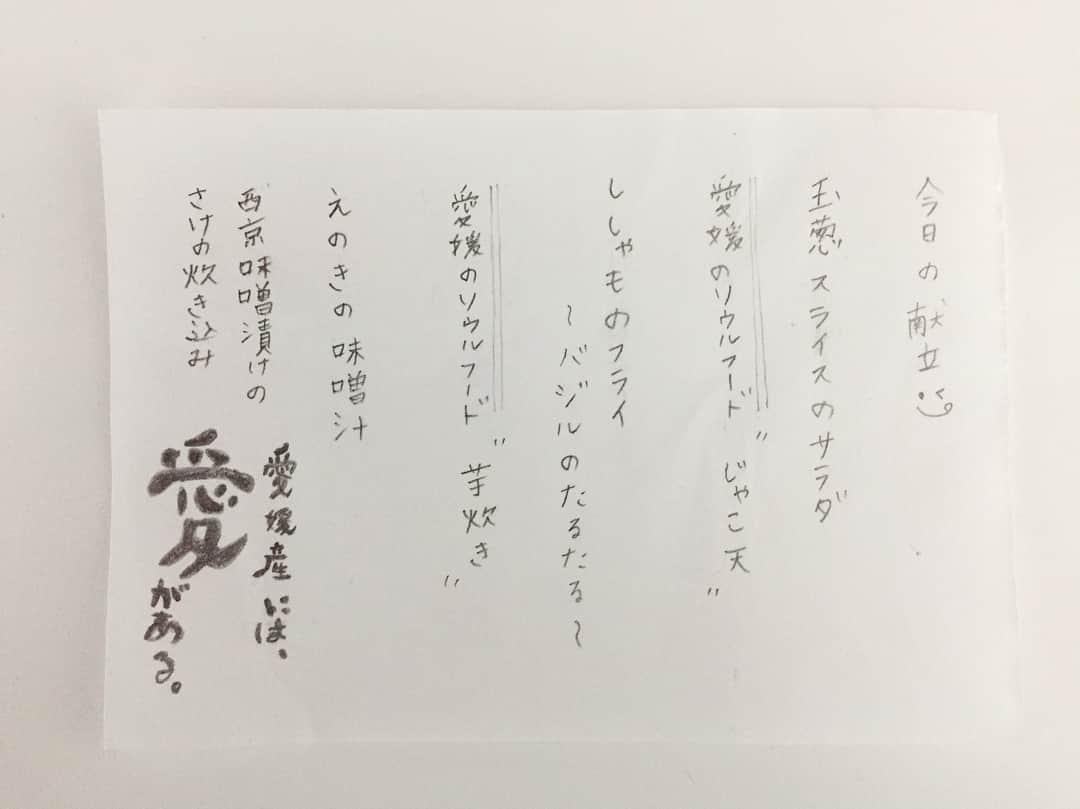 今日の献立
玉葱スライスのサラダ
愛媛のソウルフード"じゃこ天"
ししゃものフライ
〜バジルのたるたる〜
愛媛のソウルフード"芋炊き"
えのきの味噌汁
西京味噌漬けの
さけの炊き込み
愛媛産には、
愛がある。